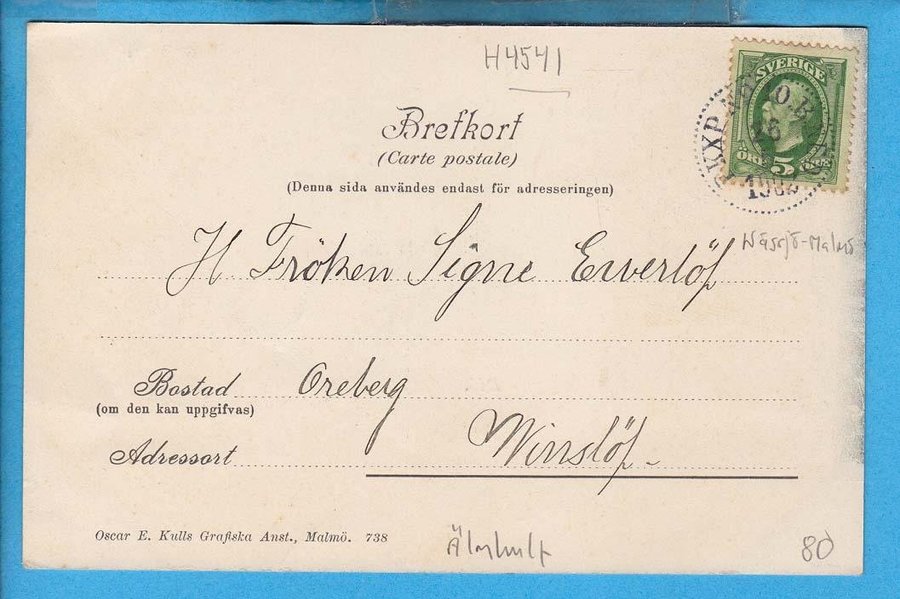 H4541
SVERIGE
ÖRE 5 ÖRE
PKXP N
1902
Brefkort
(Carte postale)
(Denna sida användes endast för adresseringen)
Nässjö-Malmö
H Fröken Signe Erverlöf
Bostad Oreberg
(om den kan uppgifvas)
Adressort Winslöf-
Oscar E. Kulls Grafiska Anst., Malmö. 738
Älmhult
80